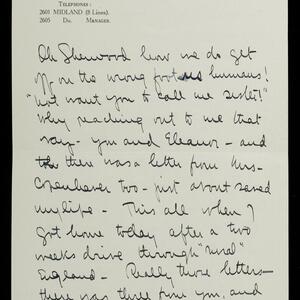 Telephones:
2601 MIDLAND (8 Lines).
2605 Do. Manager.
Oh Sherwood how we do get
off on the wrong foot us humans!
"Not want you to call me sister!"
Why reaching out to me that
way - you and Eleanor - and
there was a letter from Mrs.
Copenhaver too - just about saved
my life - This all when I
got home today after a two
weeks drive through "rural"
England - Really those letters -
there was three from you, and